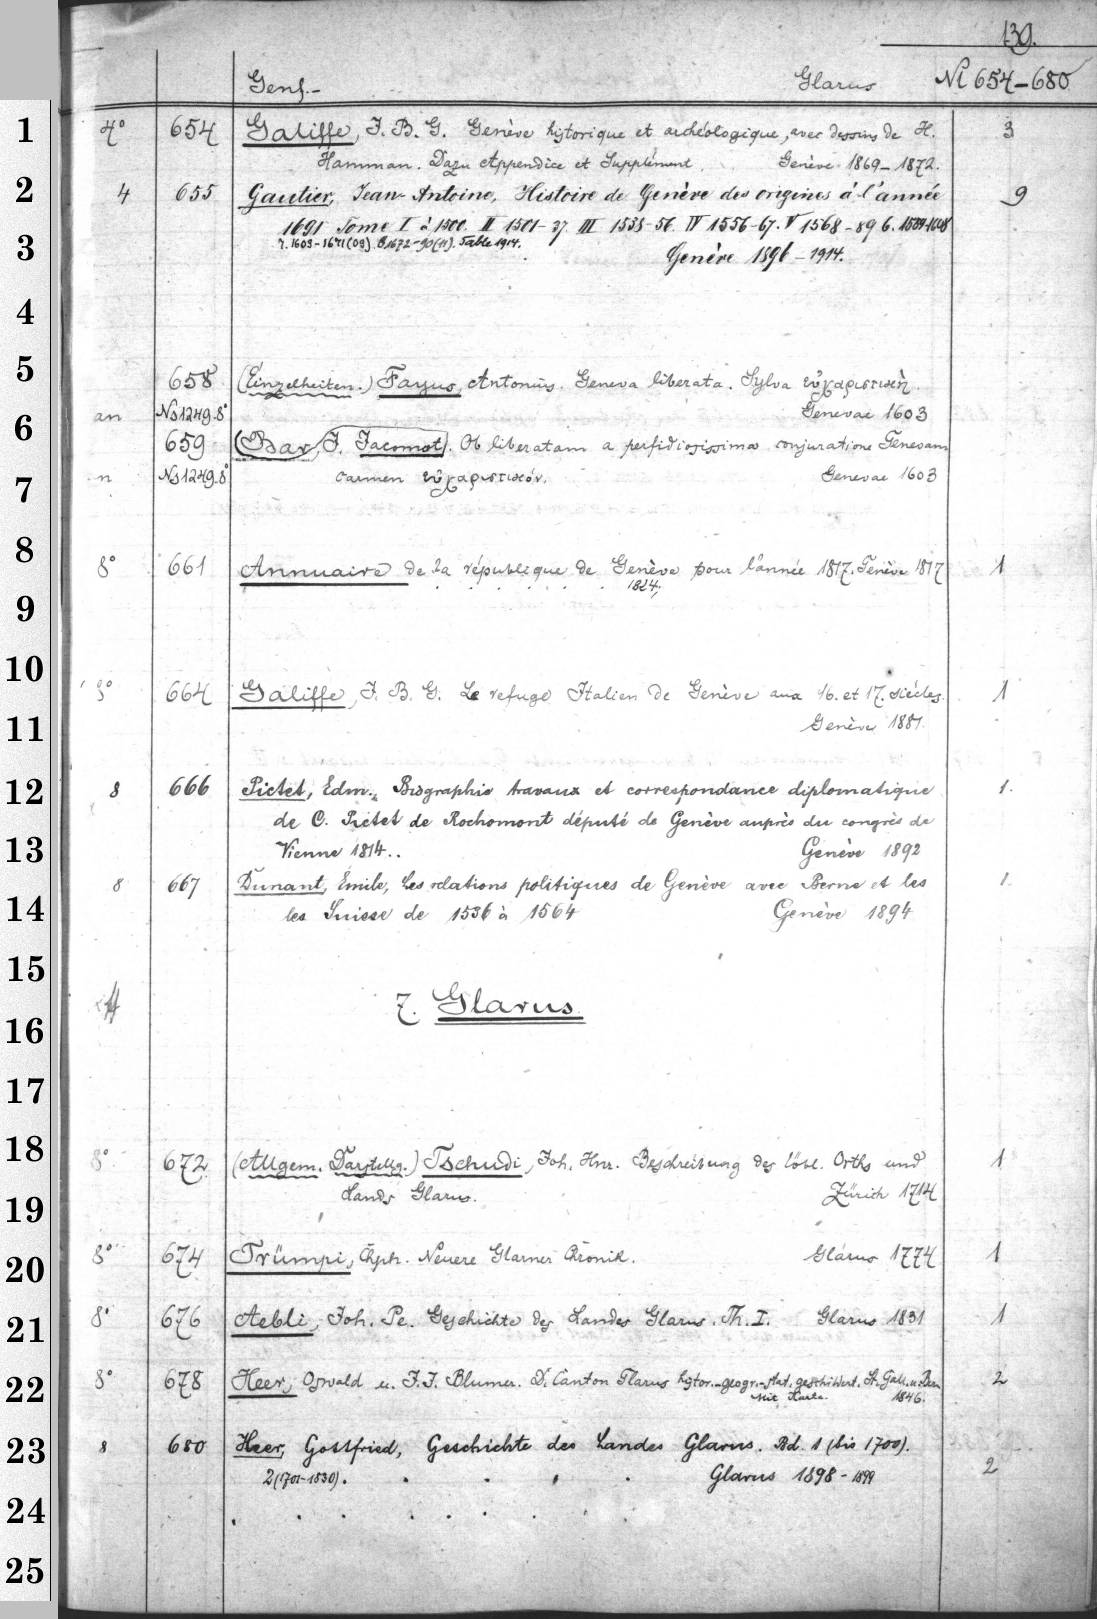 139.
Genf.- Glarus NI 654-680
1 4° 654 Galiffe, J. B. G. Genève historique et archéologique, avec dessins de H. 3
Hamman. Dazu Appendice et Supplément Genève 1869-1872.
2 4 655 Gautier, Jean-Antoine, Histoire de Genève des origines á l'année 9
1691 Tome I à 1500. II 1501-37. III 1538-56. IV 1556-67. V 1568-89 6. 1589-1608
3 7. 1603-1671(09). 8. 1672-90(11). Table 1914.
Genève 1896-1914.
4
5 658 (Einzelheiten.) Fayus, Antonius. Geneva liberata. Sylva εὐχαριστικὴ
an NS 1249. 8° Genevae 1603
6 659 (Bar, J. Jacomot). Ob liberatam a perfidiosissima conjuratione Genevam
7 n NS 1249. 8° carmen εὐχαριστικόν. Genevae 1603
8 8° 661 Annuaire de la république de Genève pour l'année 1817. Genève 1817 1
1824,
9
10 8° 664 Galiffe, J. B. G. Le refuge Italien de Genève aux 16. et 17. siécles. 1
11 Genève 1881
12 8 666 Pictet, Edm., Biographie travaux et correspondance diplomatique 1.
de C. Pictet de Rochemont député de Genève auprès du congrès de
13 Vienne 1814.. Genève 1892
8 667 Dunant, Émile, Les relations politiques de Genève avec Berne et les 1.
14 les Suisse de 1536 à 1564 Genève 1894
15
7. Glarus
16
17
18 8° 672 (Allgem. Darstellg.) Tschudi, Joh. Hnr. Beschreibung des löbl. Orths und 1
19 Lands Glarus. Zürich 1714
20 8° 674 Trümpi, Chph. Neuere Glarner Chronik. Glarus 1774 1
21 8° 676 Aebli, Joh. Pe. Geschichte des Landes Glarus. Th. I. Glarus 1831 1
22 8° 678 Heer, Oswald u. J. J. Blumer. D. Canton Glarus histor.-geogr.-stat. geschildert. St. Gall. u. Bern 2
mit Karte. 1846.
23 8 680 Heer, Gottfried, Geschichte des Landes Glarus. Bd. 1 (bis 1700).
2 (1701-1830). Glarus 1898-1899 2
24
25